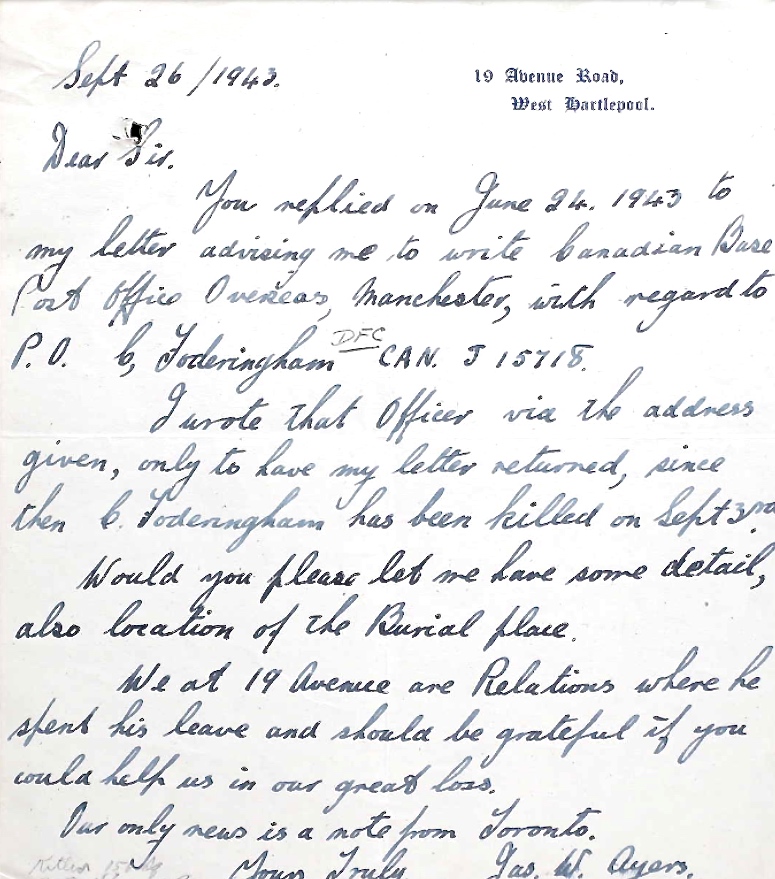 Sept 26/1943.
19 Avenue Road,
West Hartlepool.
Dear Sir.
You replied on June 24. 1943 to
my letter advising me to write Canadian Base
Post Office Overseas, Manchester, with regard to
DFC
P.O. C, Foderingham CAN. J 15718.
I wrote that Officer via the address
given, only to have my letter returned, since
then C. Foderingham has been killed on Sept 3rd.
Would you please let me have some detail,
also location of the Burial place.
We at 19 Avenue are Relations where he
spent his leave and should be grateful if you
could help us in our great loss.
Our only news is a note from Toronto.
Yours Truly Jas. W. Ayers.